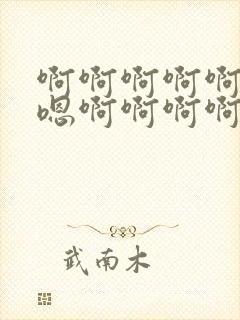 啊啊啊啊啊
嗯啊啊啊啊
武南木